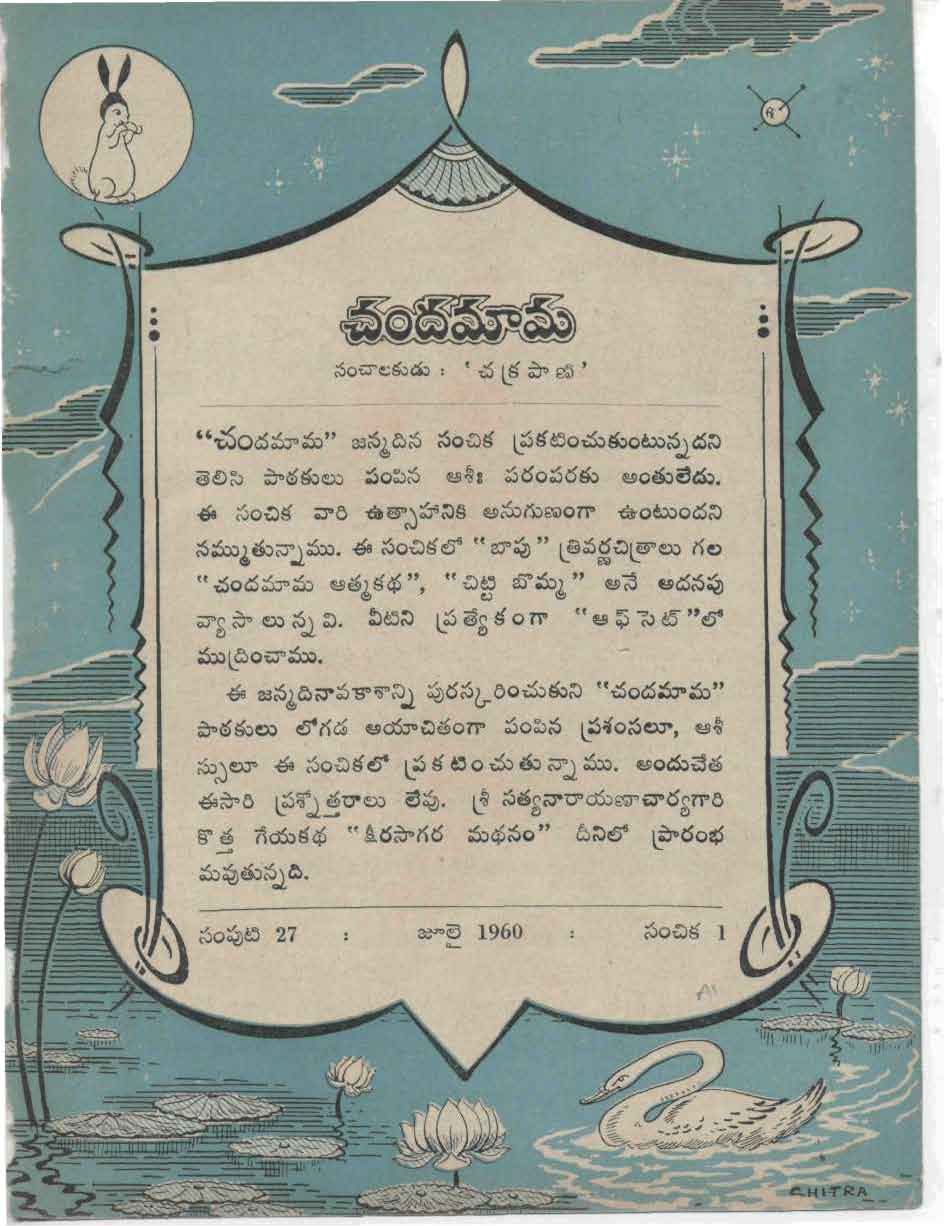 చందమామ
సంచాలకుడు : ‘చక్రపాణి’
“చందమామ” జన్మదిన సంచిక ప్రకటించుకుంటున్నదని
తెలిసి పాఠకులు పంపిన ఆశీః పరంపరకు అంతులేదు.
ఈ సంచిక వారి ఉత్సాహానికి అనుగుణంగా ఉంటుందని
నమ్ముతున్నాము. ఈ సంచికలో “బాపు” త్రివర్ణచిత్రాలు గల
“చందమామ ఆత్మకథ”, “చిట్టి బొమ్మ” అనే అదనపు
వ్యాసాలున్నవి. వీటిని ప్రత్యేకంగా “ఆఫ్‌సెట్”లో
ముద్రించాము.
ఈ జన్మదినావకాశాన్ని పురస్కరించుకుని “చందమామ”
పాఠకులు లోగడ ఆయాచితంగా పంపిన ప్రశంసలూ, ఆశీ
స్సులూ ఈ సంచికలో ప్రకటించుతున్నాము. అందుచేత
ఈసారి ప్రశ్నోత్తరాలు లేవు. శ్రీ సత్యనారాయణాచార్యగారి
కొత్త గేయకథ “క్షీరసాగర మథనం” దీనిలో ప్రారంభ
మవుతున్నది.
సంపుటి 27 : జూలై 1960 : సంచిక 1
A1
CHITRA